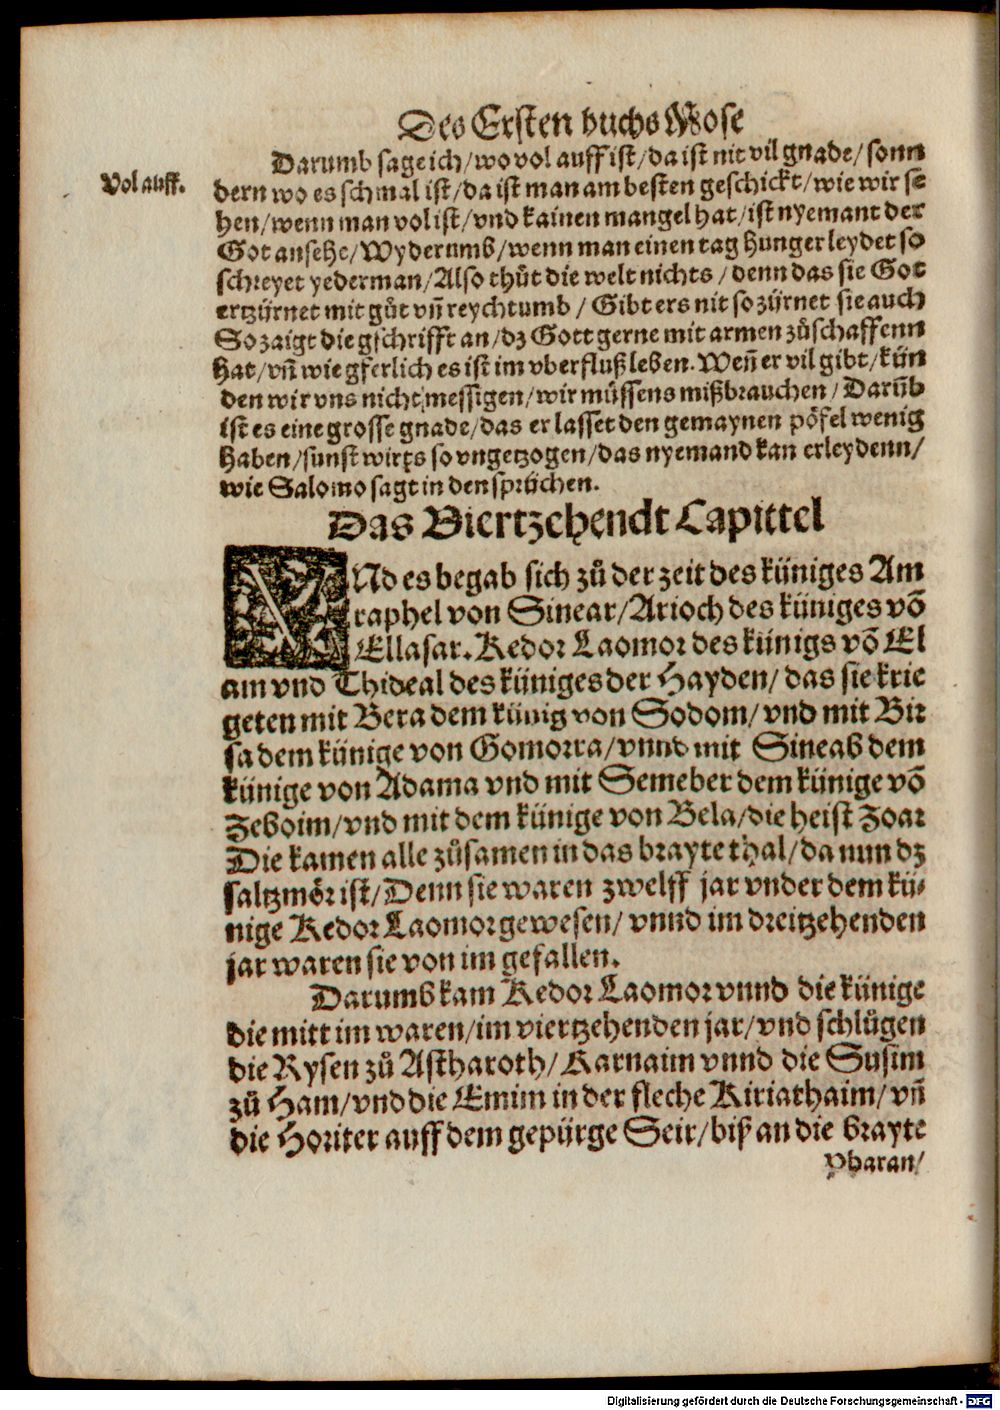 Des Ersten buchs Mose
Darumb sage ich/wo vol auff ist/da ist nit vil gnade/sonn
Vol auff.
dern wo es schmal ist/da ist man am besten geschickt/wie wir se
hen/wenn man vol ist/vnd kainen mangel hat/ist nyemant der
Got ansehe/Wyderumb/wenn man einen tag hunger leydet so
schreyet yederman/Also thůt die welt nichts/denn das sie Got
ertzürnet mit gůt vñ reychtumb/Gibt ers nit so zürnet sie auch
So zaigt die gschrifft an/dz Gott gerne mit armen zůschaffenn
hat/vñ wie gferlich es ist im vberfluß leben. Weñ er vil gibt/kün
den wir vns nicht messigen/wir müssens mißbrauchen/Darũb
ist es eine grosse gnade/das er lasset den gemaynen pöfel wenig
haben/sunst wirts so vngetzogen/das nyemand kan erleydenn/
wie Salomo sagt in den sprüchen.
Das Viertzehendt Capittel
VNd es begab sich zů der zeit des küniges Am
raphel von Sinear/Arioch des küniges võ
Ellasar. Kedor Laomor des künigs võ El
am vnd Thideal des küniges der Hayden/das sie krie
geten mit Bera dem künig von Sodom/vnd mit Bir
sa dem künige von Gomorra/vnnd mit Sineab dem
künige von Adama vnd mit Semeber dem künige võ
Zeboim/vnd mit dem künige von Bela/die heist Zoar
Die kamen alle zůsamen in das brayte thal/da nun dz
saltzmör ist/Denn sie waren zwelff jar vnder dem kü-
nige Kedor Laomor gewesen/vnnd im dreitzehenden
jar waren sie von im gefallen.
Darumb kam Kedor Laomor vnnd die künige
die mitt im waren/im viertzehenden jar/vnd schlůgen
die Rysen zů Astharoth/Karnaim vnnd die Susim
zů Ham/vnd die Emim in der fleche Kiriathaim/vñ
die Horiter auff dem gepürge Seir/biß an die brayte
Pharan/
Digitalisierung gefördert durch die Deutsche Forschungsgemeinschaft - DFG